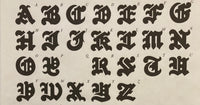 A B C D E F G
H I J K L M N
O P R S T U
V W X Y Z